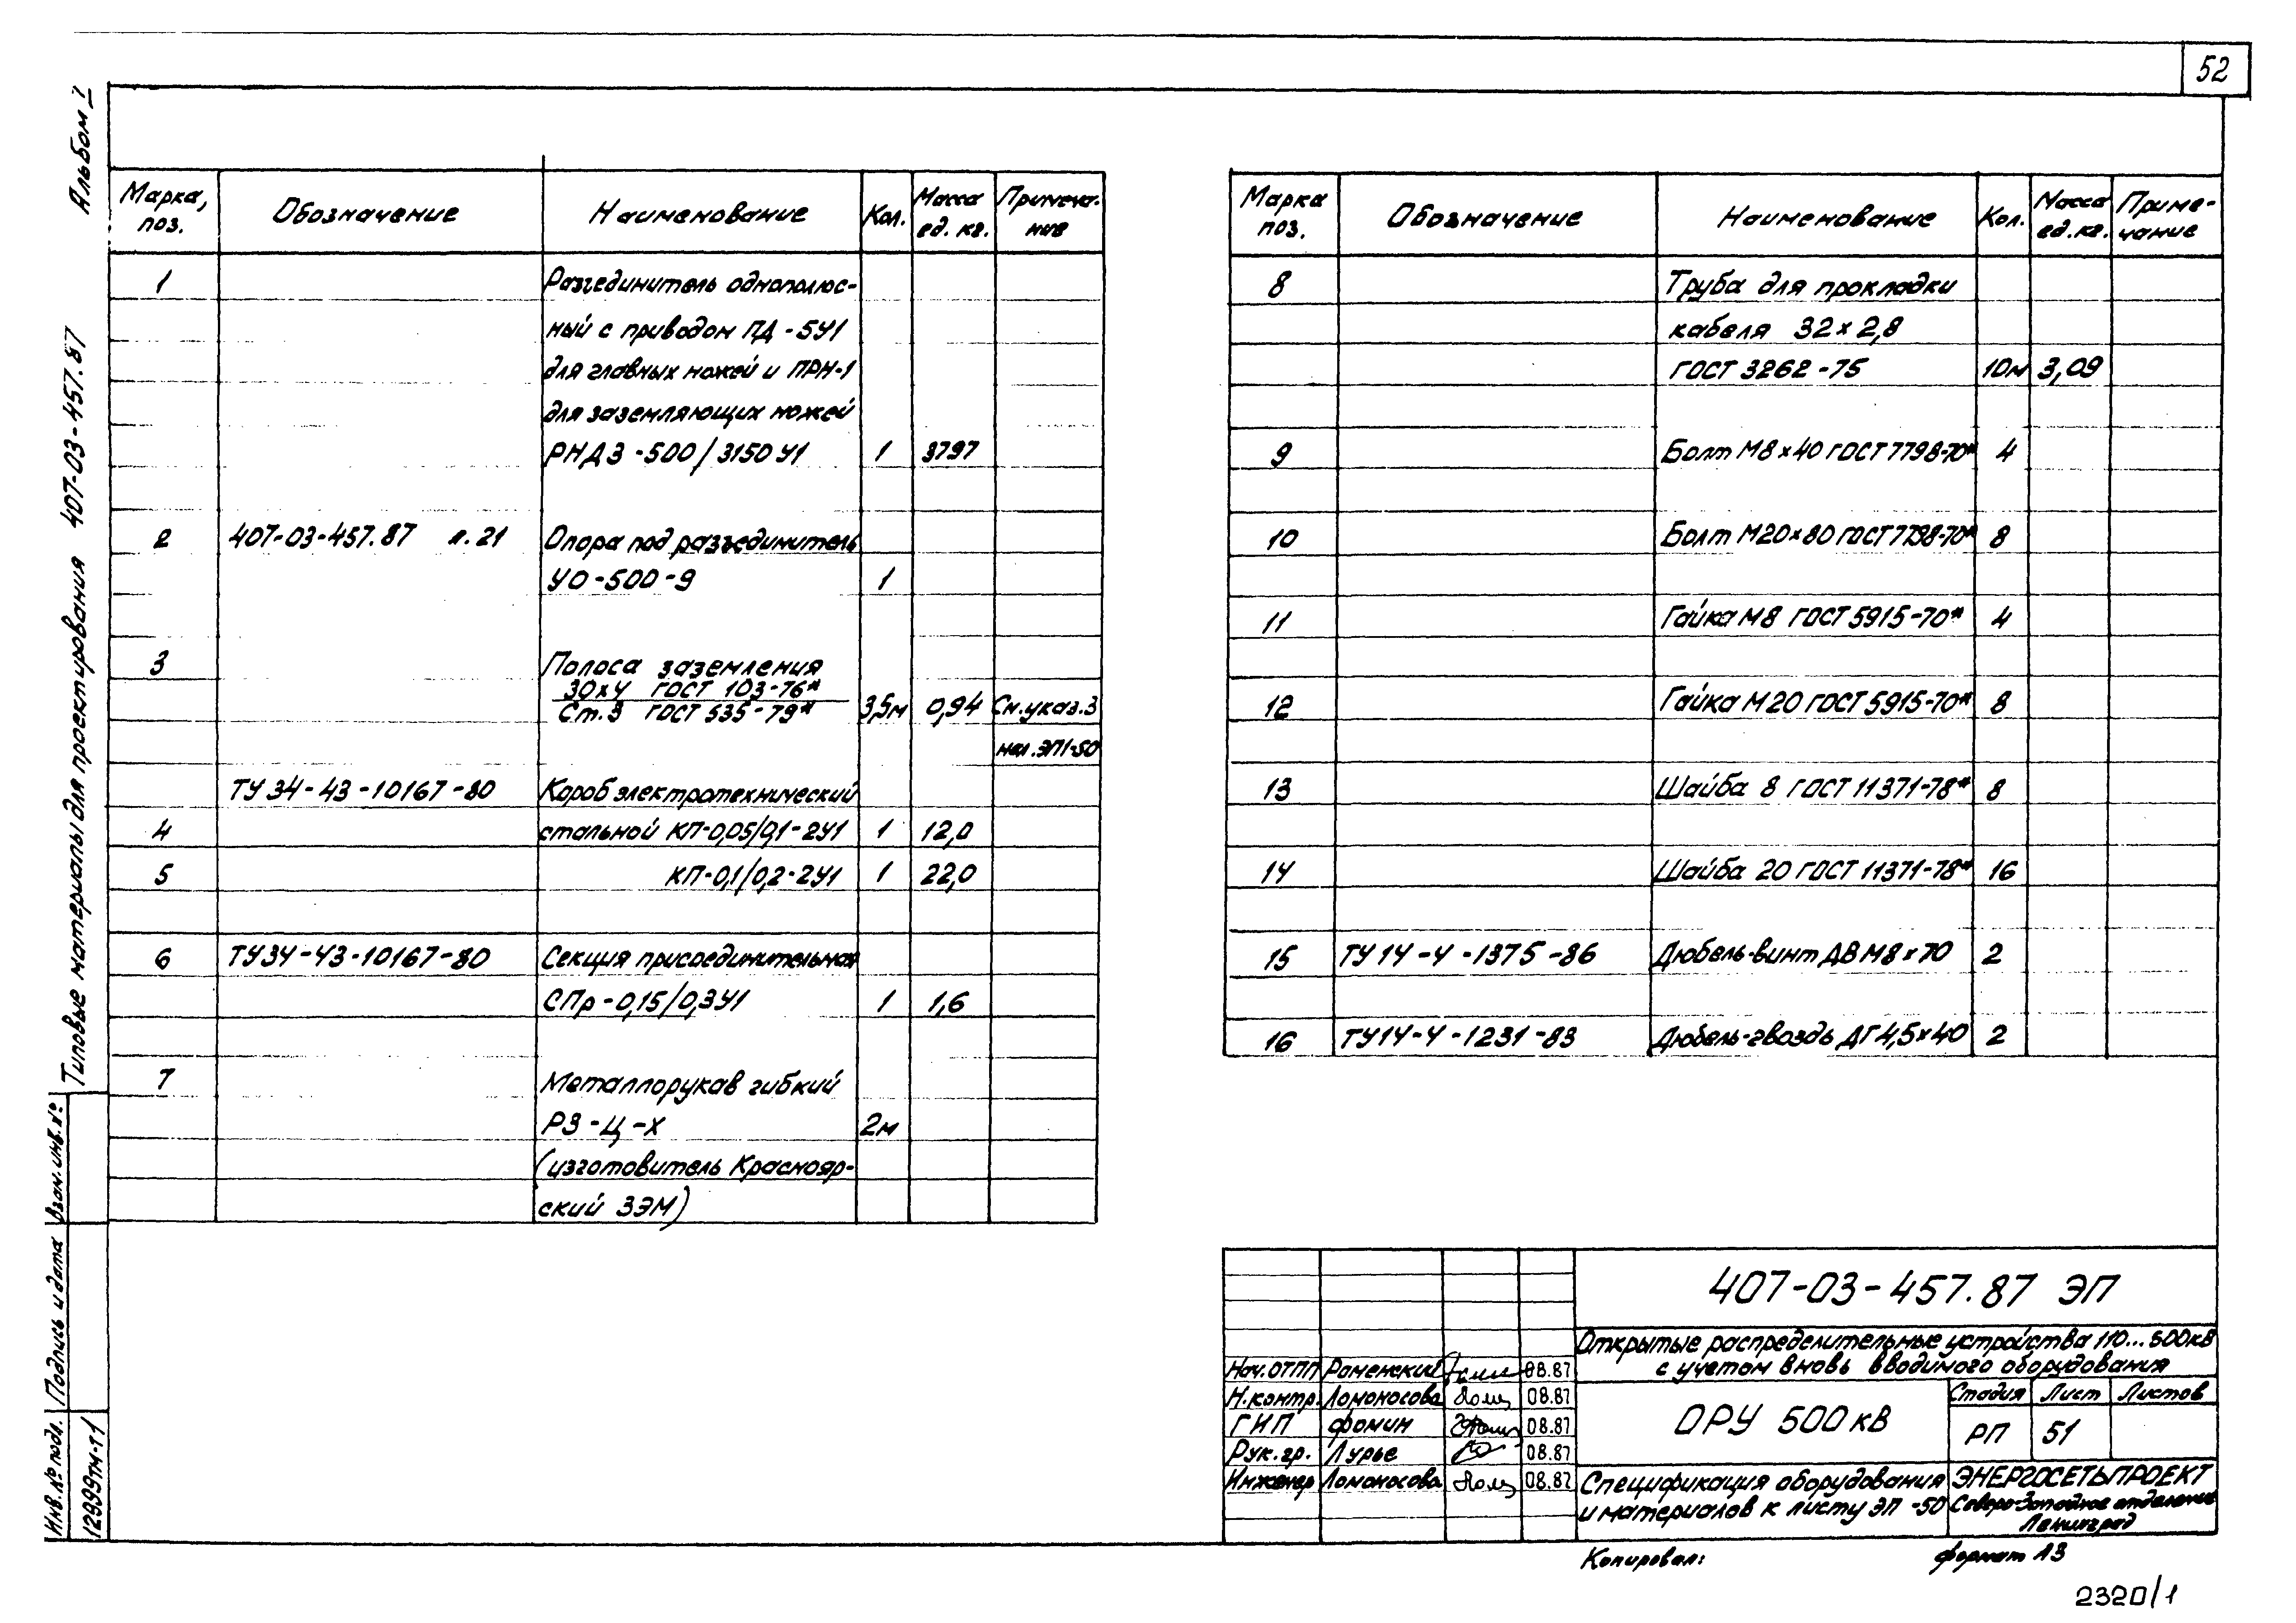 52
Альбом 1
Типовые материалы для проектирования 407-03-457.87
Марка, поз. Обозначение Наименование Кол. Масса ед. кг. Примеча-ние
1 Разъединитель однополюс-
ный с приводом ПД-5У1
для главных ножей и ПРН-1
для заземляющих ножей
РНДЗ-500/3150 У1 1 3797
2 407-03-457.87 л.21 Опора под разъединитель
УО-500-9 1
3 Полоса заземления
30х4 ГОСТ 103-76*
Ст.3 ГОСТ 535-79* 3,5м 0,94 См.указ.3
на л.ЭП1-50
ТУ 34-43-10167-80 Короб электротехнический
4 стальной КП-0,05/0,1-2У1 1 12,0
5 КП-0,1/0,2-2У1 1 22,0
6 ТУ34-43-10167-80 Секция присоединительная
СПр-0,15/0,3У1 1 1,6
7 Металлорукав гибкий
РЗ-Ц-Х 2м
(изготовитель Краснояр-
ский ЗЭМ)
Марка поз. Обозначение Наименование Кол. Масса ед.кг. Приме-чание
8 Труба для прокладки
кабеля 32×2,8
ГОСТ 3262-75 10м 3,09
9 Болт М8×40 ГОСТ 7798-70* 4
10 Болт М20×80 ГОСТ 7798-70* 8
11 Гайка М8 ГОСТ 5915-70* 4
12 Гайка М20 ГОСТ 5915-70* 8
13 Шайба 8 ГОСТ 11371-78* 8
14 Шайба 20 ГОСТ 11371-78* 16
15 ТУ 14-4-1375-86 Дюбель-винт ДВ М8×70 2
16 ТУ14-4-1231-83 Дюбель-гвоздь ДГ 4,5×40 2
Взам.инв.№
Подпись и дата
Инв.№ подл.
12999тм-т1
407-03-457.87 ЭП
Открытые распределительные устройства 110...500кВ
с учетом вновь вводимого оборудования
Нач.ОТПП Роменский 08.87
Н.контр. Ломоносова 08.87
ГИП Фомин 08.87
Рук.гр. Лурье 08.87
Инженер Ломоносова 08.87
ОРУ 500кВ
Стадия Лист Листов
РП 51
Спецификация оборудования
и материалов к листу ЭП-50
ЭНЕРГОСЕТЬПРОЕКТ
Северо-Западное отделение
Ленинград
Копировал: формат А3
2320/1